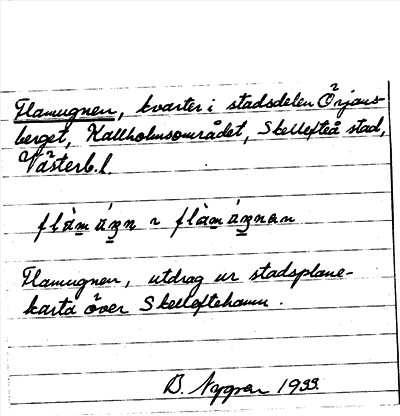 Flamugnen, kvarter i stadsdelen Örjans-
berget, Kallholmsområdet, Skellefteå stad,
Västerb. l.
flàmáŋn ~ flàmáŋnən
Flamugnen, utdrag ur stadsplane-
karta över Skelleftehamn.
B. Nygren 1933.